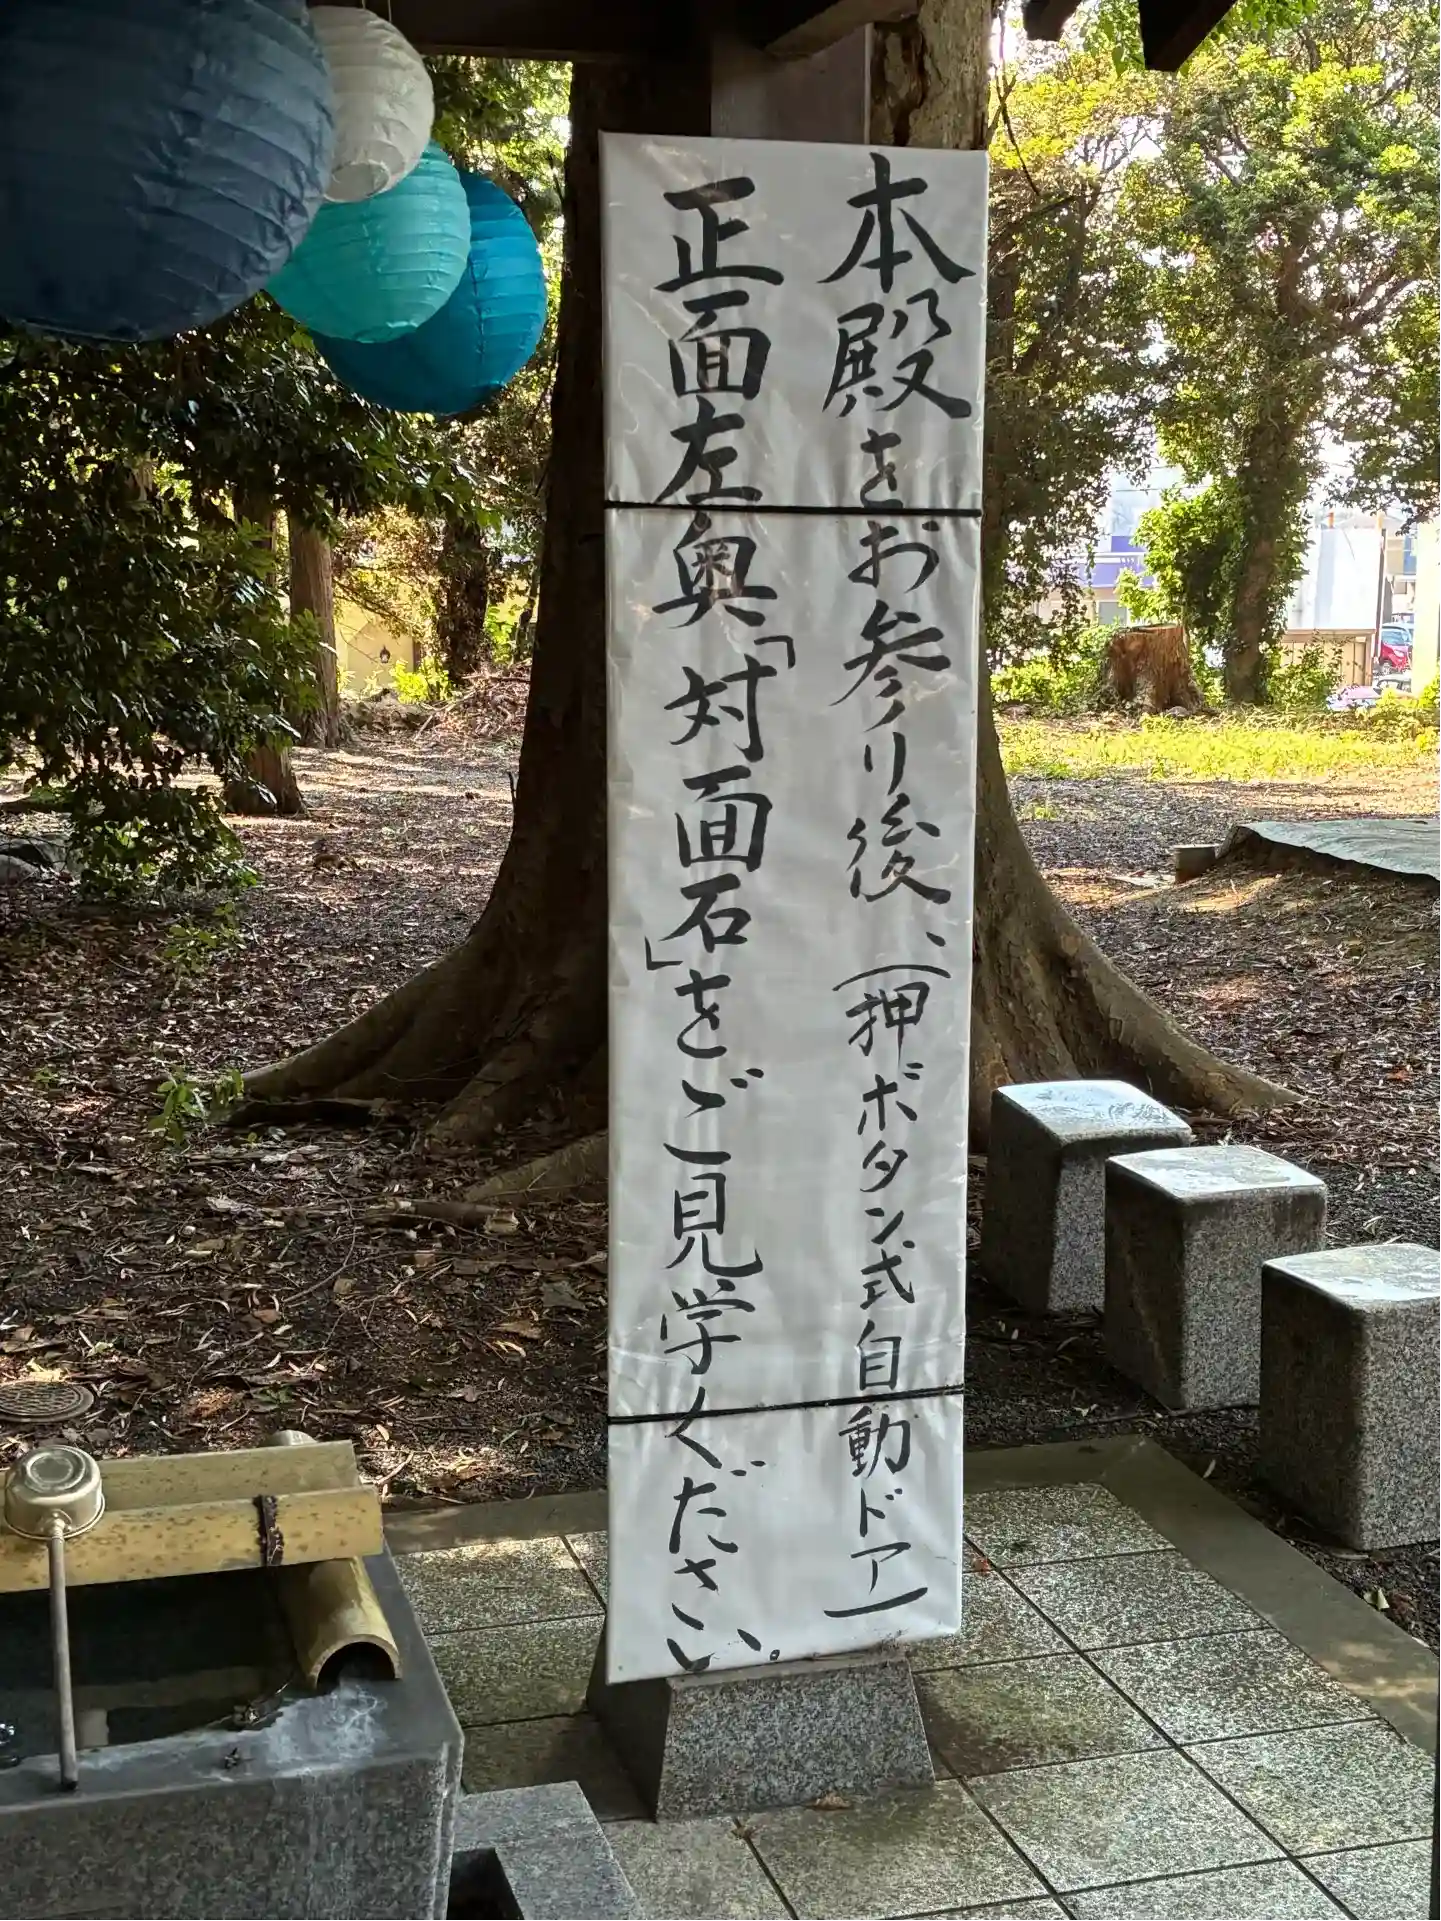 本殿をお参り後、(押ボタン式自動ドア)
正面左奥「対面石」をご見学ください。